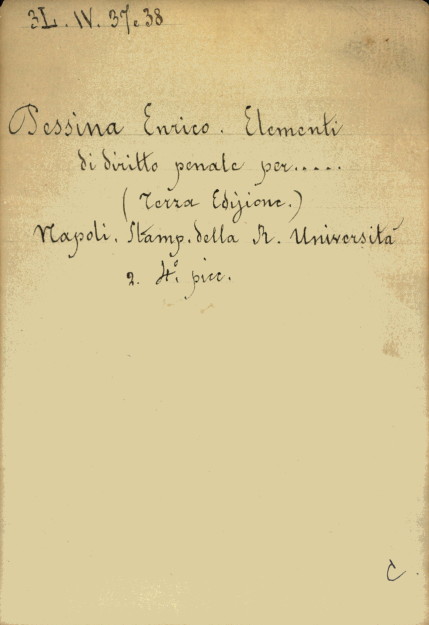 3L. IV. 37 e 38
Pessina Enrico. Elementi
di diritto penale per.....
(Terza Edizione.)
Napoli. Stamp. della R. Università
2. 4º. picc.
C